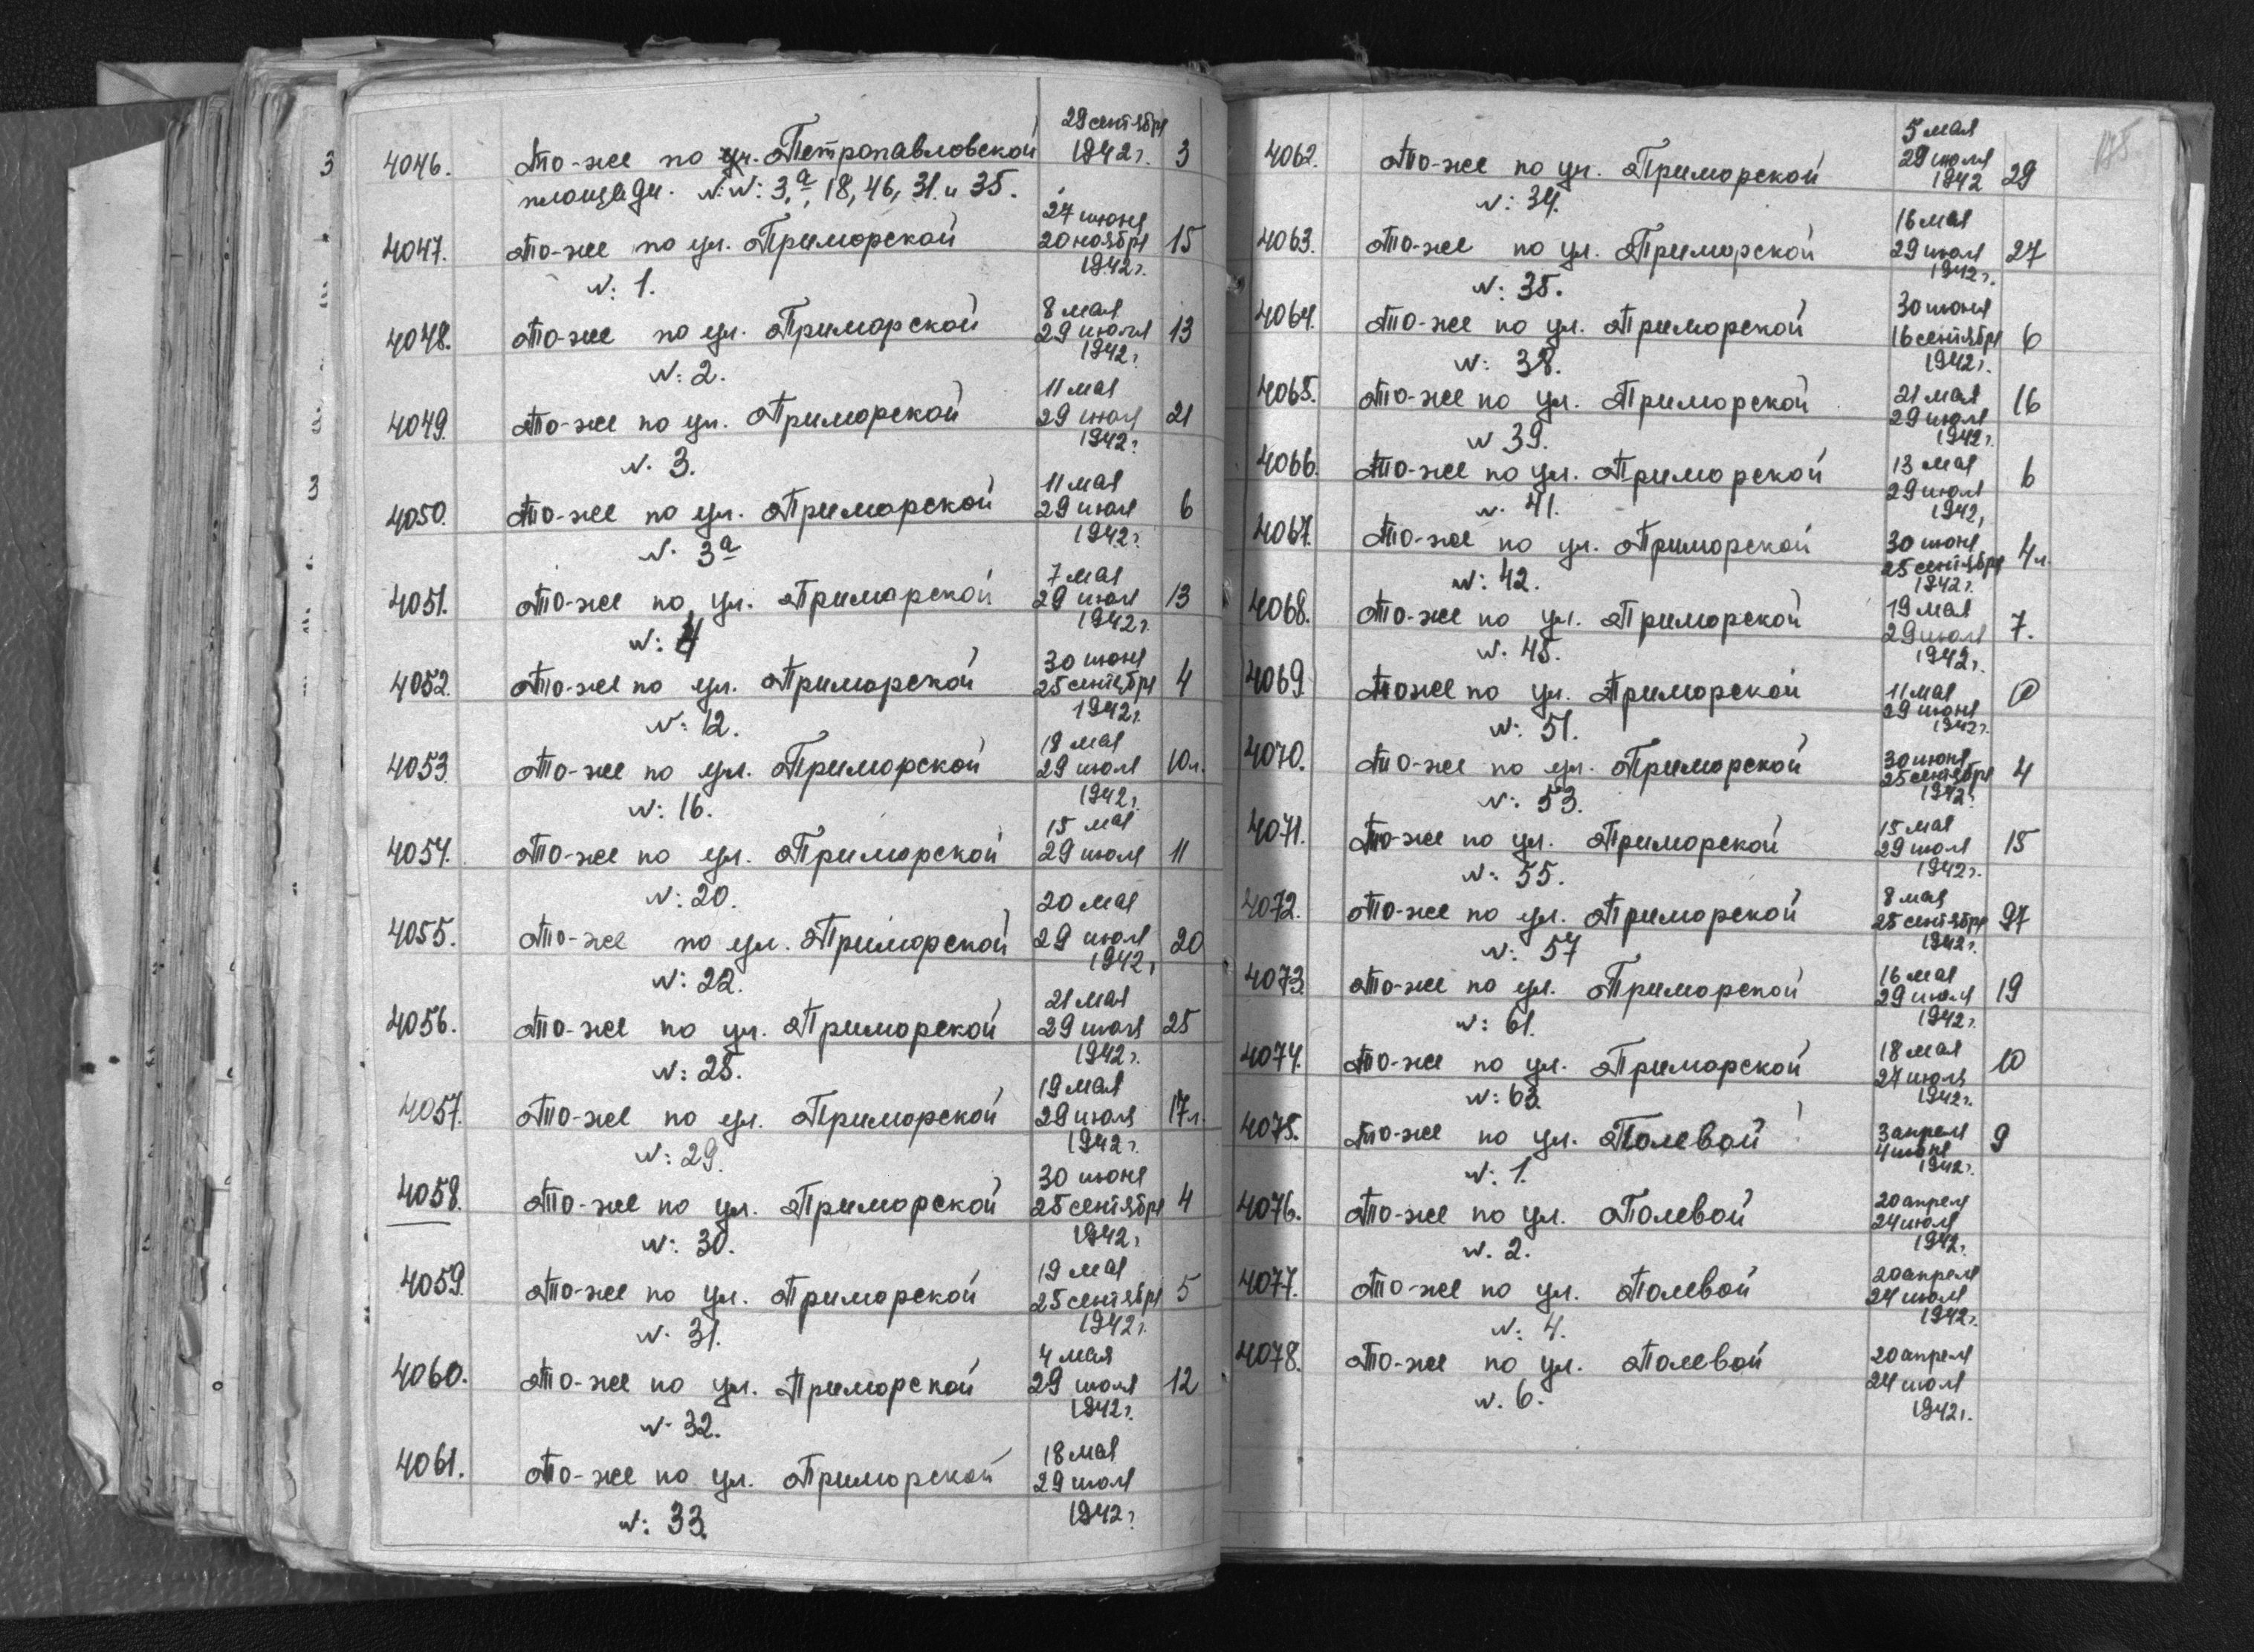 29 сентября
4046. То-же по ул. Петропавловской 1942 г. 3
площади. N:N: 3, а, 18, 46, 31. и 35.
27 июня
4047. То-же по ул. Приморской 20 ноября 15
N: 1. 1942 г.
8 мая
4048. То-же по ул. Приморской 29 июля 13
N: 2. 1942 г.
11 мая
4049. То-же по ул. Приморской 29 июля 21
N. 3. 1942 г.
11 мая
4050. То-же по ул. Приморской 29 июля 6
N. 3а 1942 г.
7 мая
4051. То-же по ул. Приморской 29 июля 13
N: 4 1942 г.
30 июня
4052. То-же по ул. Приморской 25 сентября 4
N: 12. 1942 г.
18 мая
4053. То-же по ул. Приморской 29 июля 10 л.
N: 16. 1942 г.
15 мая
4054. То-же по ул. Приморской 29 июля 11
N: 20.
20 мая
4055. То-же по ул. Приморской 29 июля 20
N: 22. 1942 г
21 мая
4056. То-же по ул. Приморской 29 июля 25
N: 25. 1942 г.
19 мая
4057. То-же по ул. Приморской 29 июля 17 л.
N: 29. 1942 г.
30 июня
4058. То-же по ул. Приморской 25 сентября 4
N: 30. 1942 г.
19 мая
4059. То-же по ул. Приморской 25 сентября 5
N. 31. 1942 г.
4 мая
4060. То-же по ул. Приморской 29 июля 12
N. 32. 1942 г.
18 мая
4061. То-же по ул. Приморской 29 июля
N: 33. 1942 г.
185
5 мая
4062. То-же по ул. Приморской 29 июля 29
N: 34. 1942
16 мая
4063. То-же по ул. Приморской 29 июля 27
N: 35. 1942 г.
30 июня
4064. То-же по ул. Приморской 16 сентября 6
N: 38. 1942 г.
21 мая
4065. То-же по ул. Приморской 29 июля 16
N 39. 1942 г.
13 мая
4066. То-же по ул. Приморской 29 июля 6
N. 41. 1942 г
30 июня
4067. То-же по ул. Приморской 25 сентября 4 л.
N: 42. 1942 г.
19 мая
4068. То-же по ул. Приморской 29 июля 7.
N. 45. 1942 г.
11 мая
4069 Тоже по ул. Приморской 29 июня 10
N: 51. 1942 г.
30 июня
4070. То-же по ул. Приморской 25 сентября 4
N: 53. 1942 г.
15 мая
4071. То-же по ул. Приморской 29 июля 15
N: 55. 1942 г.
8 мая
4072. То-же по ул. Приморской 25 сентября 97
N: 57 1942 г.
16 мая
4073. То-же по ул. Приморской 29 июля 19
N: 61. 1942 г.
18 мая
4074. То-же по ул. Приморской 27 июля 10
N: 63. 1942 г.
3 апреля
4075. То-же по ул. Полевой 4 июня 9
N: 1. 1942 г.
20 апреля
4076. То-же по ул. Полевой 24 июля
N. 2. 1942 г.
20 апреля
4077. То-же по ул. Полевой 24 июля
N: 4. 1942 г.
20 апреля
4078. То-же по ул. Полевой 24 июля
N. 6. 1942 г.